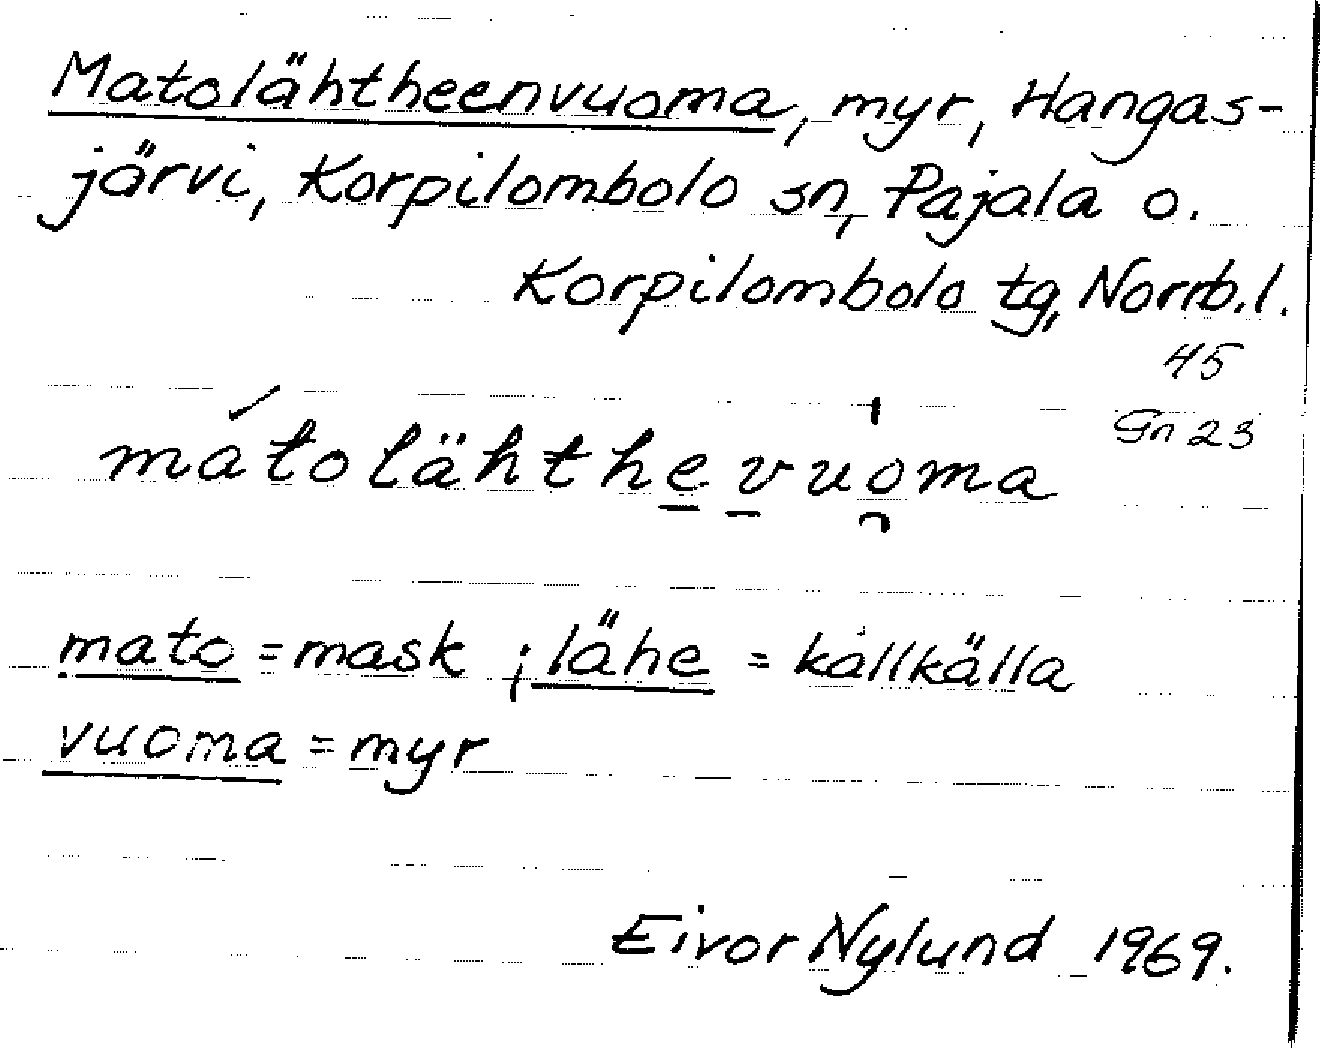 Matolähtheenvuoma, myr, Hangas-
järvi, Korpilombolo sn, Pajala o.
Korpilombolo tg, Norrb.l.
45
Gn 23
mátolähthevuoma
mato = mask ; lähe = kallkälla
vuoma = myr
Eivor Nylund 1969.